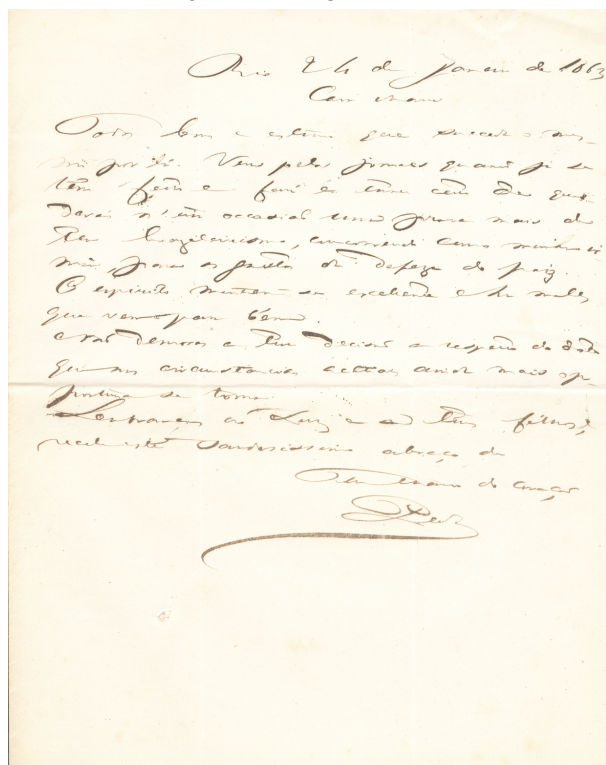 Rio 24 de Janeiro de 1863
Cara Mana
Todos bons e estimo que succeda o mes-
mo por lá. Verás pelos jornaes quanto já se
tem feito e far-se-ha e estou certo de que
darás n'esta occasião uma prova mais de
teu brazileirismo, concorrendo como minha ir-
mã, para os gastos da defeza do paiz.
O espirito mantem-se excellente e ha males
que vem para bem.
Não demores a tua decisão a respeito do
que nas circumstancias actuaes ainda mais op-
portuna se torna.
Lembranças ao Luiz e a teus filhos;
recebe este saudosissimo abraço de
Teu mano do coração
Pedro